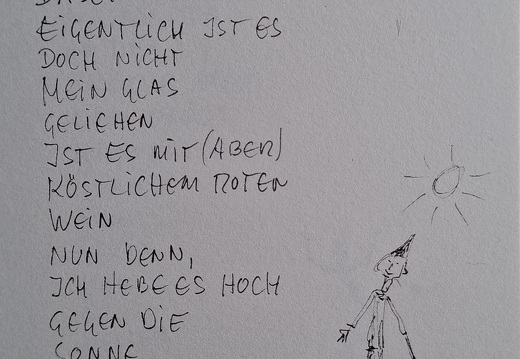 EIGENTLICH IST ES
DOCH NICHT
MEIN GLAS
GELIEHEN
IST ES MIT (ABER)
KÖSTLICHEM ROTEN
WEIN
NUN DENN,
ICH HEBE ES HOCH
GEGEN DIE
SONNE